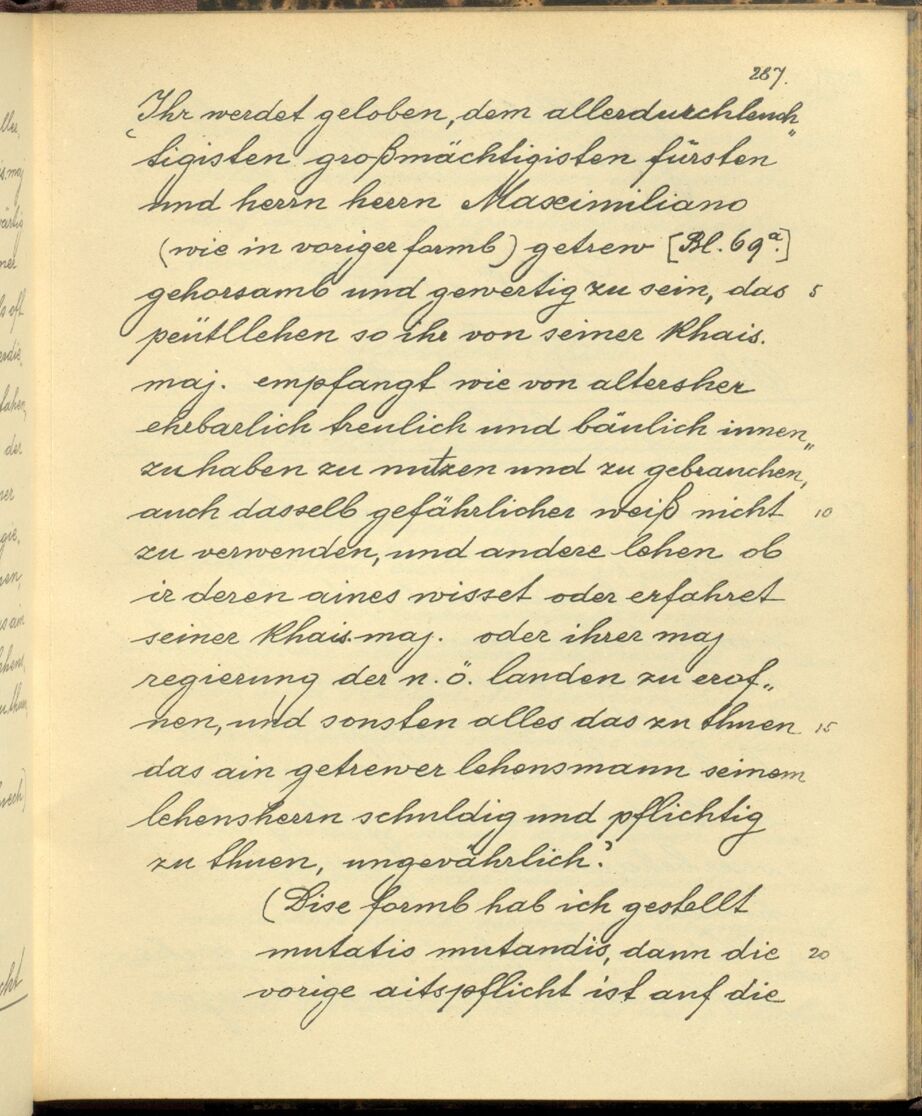 287.
‚Ihr werdet geloben, dem allerdurchleuch„
tigisten großmächtigisten fürsten
und herrn herrn Maximiliano
(wie in voriger formb) getrew [Bl. 69a.]
gehorsamb und gewertig zu sein, das 5
peütllehen so ihr von seiner khais.
maj. empfangt wie von altersher
ehrbarlich treulich und bäulich innen„
zu haben zu nutzen und zu gebrauchen,
auch dasselb gefährlicher weiß nicht 10
zu verwenden, und andere lehen ob
ir deren aines wisset oder erfahret
seiner khais. maj. oder ihrer maj
regierung der n. ö. landen zu erof„
nen, und sonsten alles das zu thuen 15
das ain getrewer lehensmann seinem
lehensherrn schuldig und pflichtig
zu thuen, ungevährlich.’
(Dise formb hab ich gestellt
mutatis mutandis, dann die 20
vorige aitspflicht ist auf die